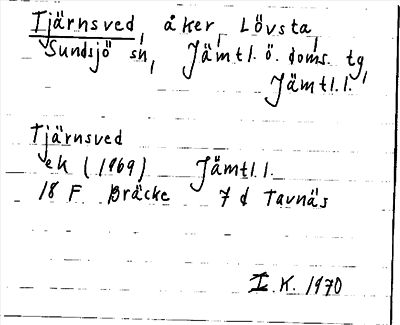 Tjärnsved, åker, Lövsta,
Sundsjö sn, Jämtl. ö. doms. tg,
Jämtl.l.
Tjärnsved
ek (1969) Jämtl.l.
18 F Bräcke 7 d Tavnäs
I.K. 1970